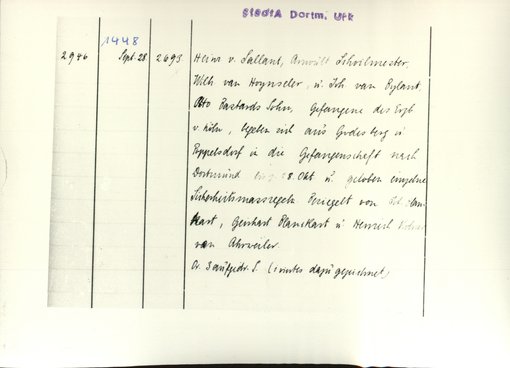 StadtA Dortm. Urk
1448
2946 Sept. 28 2693 Heinr v. Sallant, Arnoult Schoilmester,
Wilh. van Hoynseler, u. Joh. van Eylant,
Otto Bastards Sohn, Gefangene des Erzb
v. Köln, begeben sich aus Godesberg u
Poppelsdorf in die Gefangenschaft nach
Dortmund 8. Okt u. geloben einzelne
Sicherheitsmassregeln. Besiegelt von
kart, Gerhart Blanckart u Heinrich
van Ahrweiler
Or. 3 aufgedr. S. (
dazu gezeichnet)